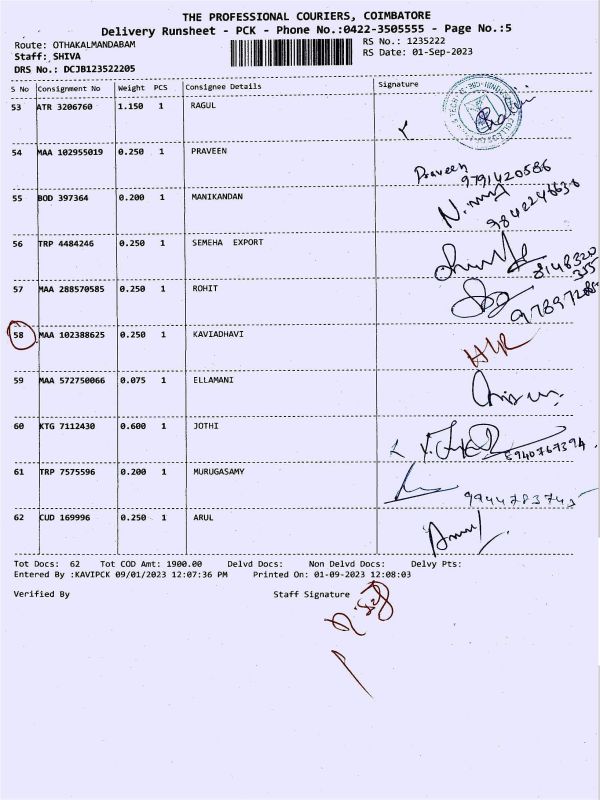 THE PROFESSIONAL COURIERS, COIMBATORE
Delivery Runsheet - PCK - Phone No.:0422-3505555 - Page No.:5
Route: OTHAKALMANDABAM
RS No.: 1235222
Staff: SHIVA
RS Date: 01-Sep-2023
DRS No.: DCJB123522205
S No Consignment No Weight PCS Consignee Details Signature
53 ATR 3206760 1.150 1 RAGUL
54 MAA 102955019 0.250 1 PRAVEEN Praveen
9791420586
55 BOD 397364 0.200 1 MANIKANDAN
9842246636
56 TRP 4484246 0.250 1 SEMEHA EXPORT
8148320
355
57 MAA 288570585 0.250 1 ROHIT
58 MAA 102388625 0.250 1 KAVIADHAVI
59 MAA 572750066 0.075 1 ELLAMANI
60 KTG 7112430 0.600 1 JOTHI
61 TRP 7575596 0.200 1 MURUGASAMY
9944783745
62 CUD 169996 0.250 1 ARUL
Tot Docs: 62 Tot COD Amt: 1900.00 Delvd Docs: Non Delvd Docs: Delvy Pts:
Entered By :KAVIPCK 09/01/2023 12:07:36 PM Printed On: 01-09-2023 12:08:03
Verified By Staff Signature